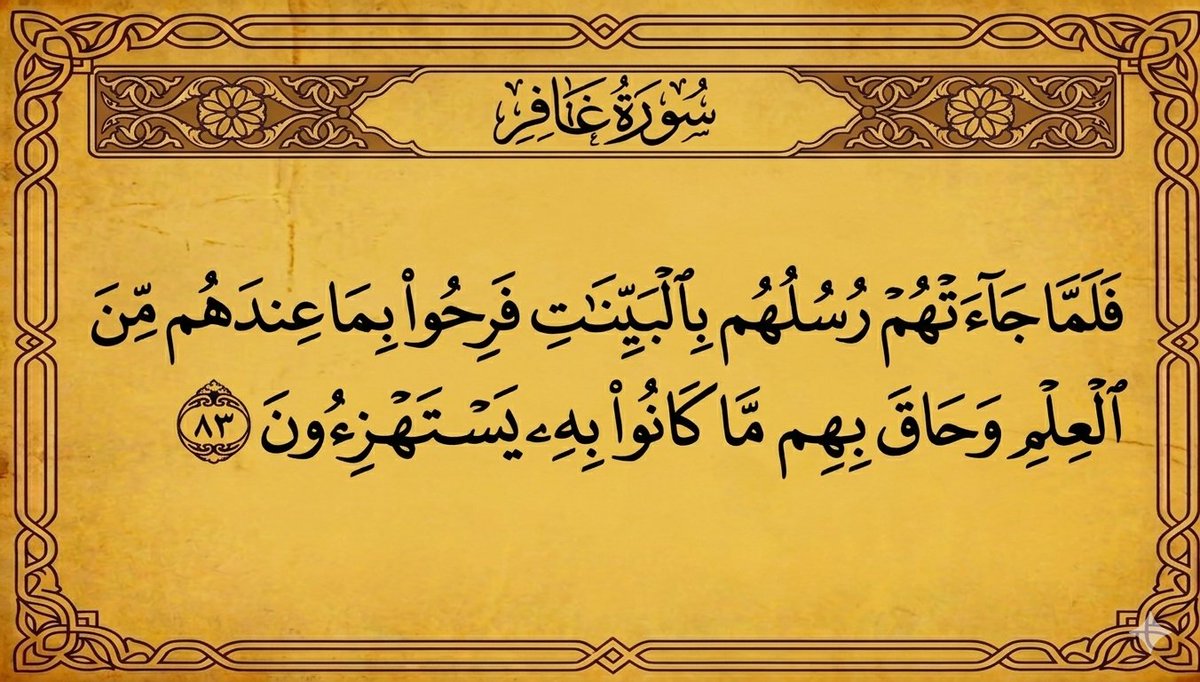 سُورَةُ غَافِرٍ
فَلَمَّا جَآءَتۡهُمۡ رُسُلُهُم بِٱلۡبَيِّنَٰتِ فَرِحُواْ بِمَا عِندَهُم مِّنَ
ٱلۡعِلۡمِ وَحَاقَ بِهِم مَّا كَانُواْ بِهِۦ يَسۡتَهۡزِءُونَ ٨٣